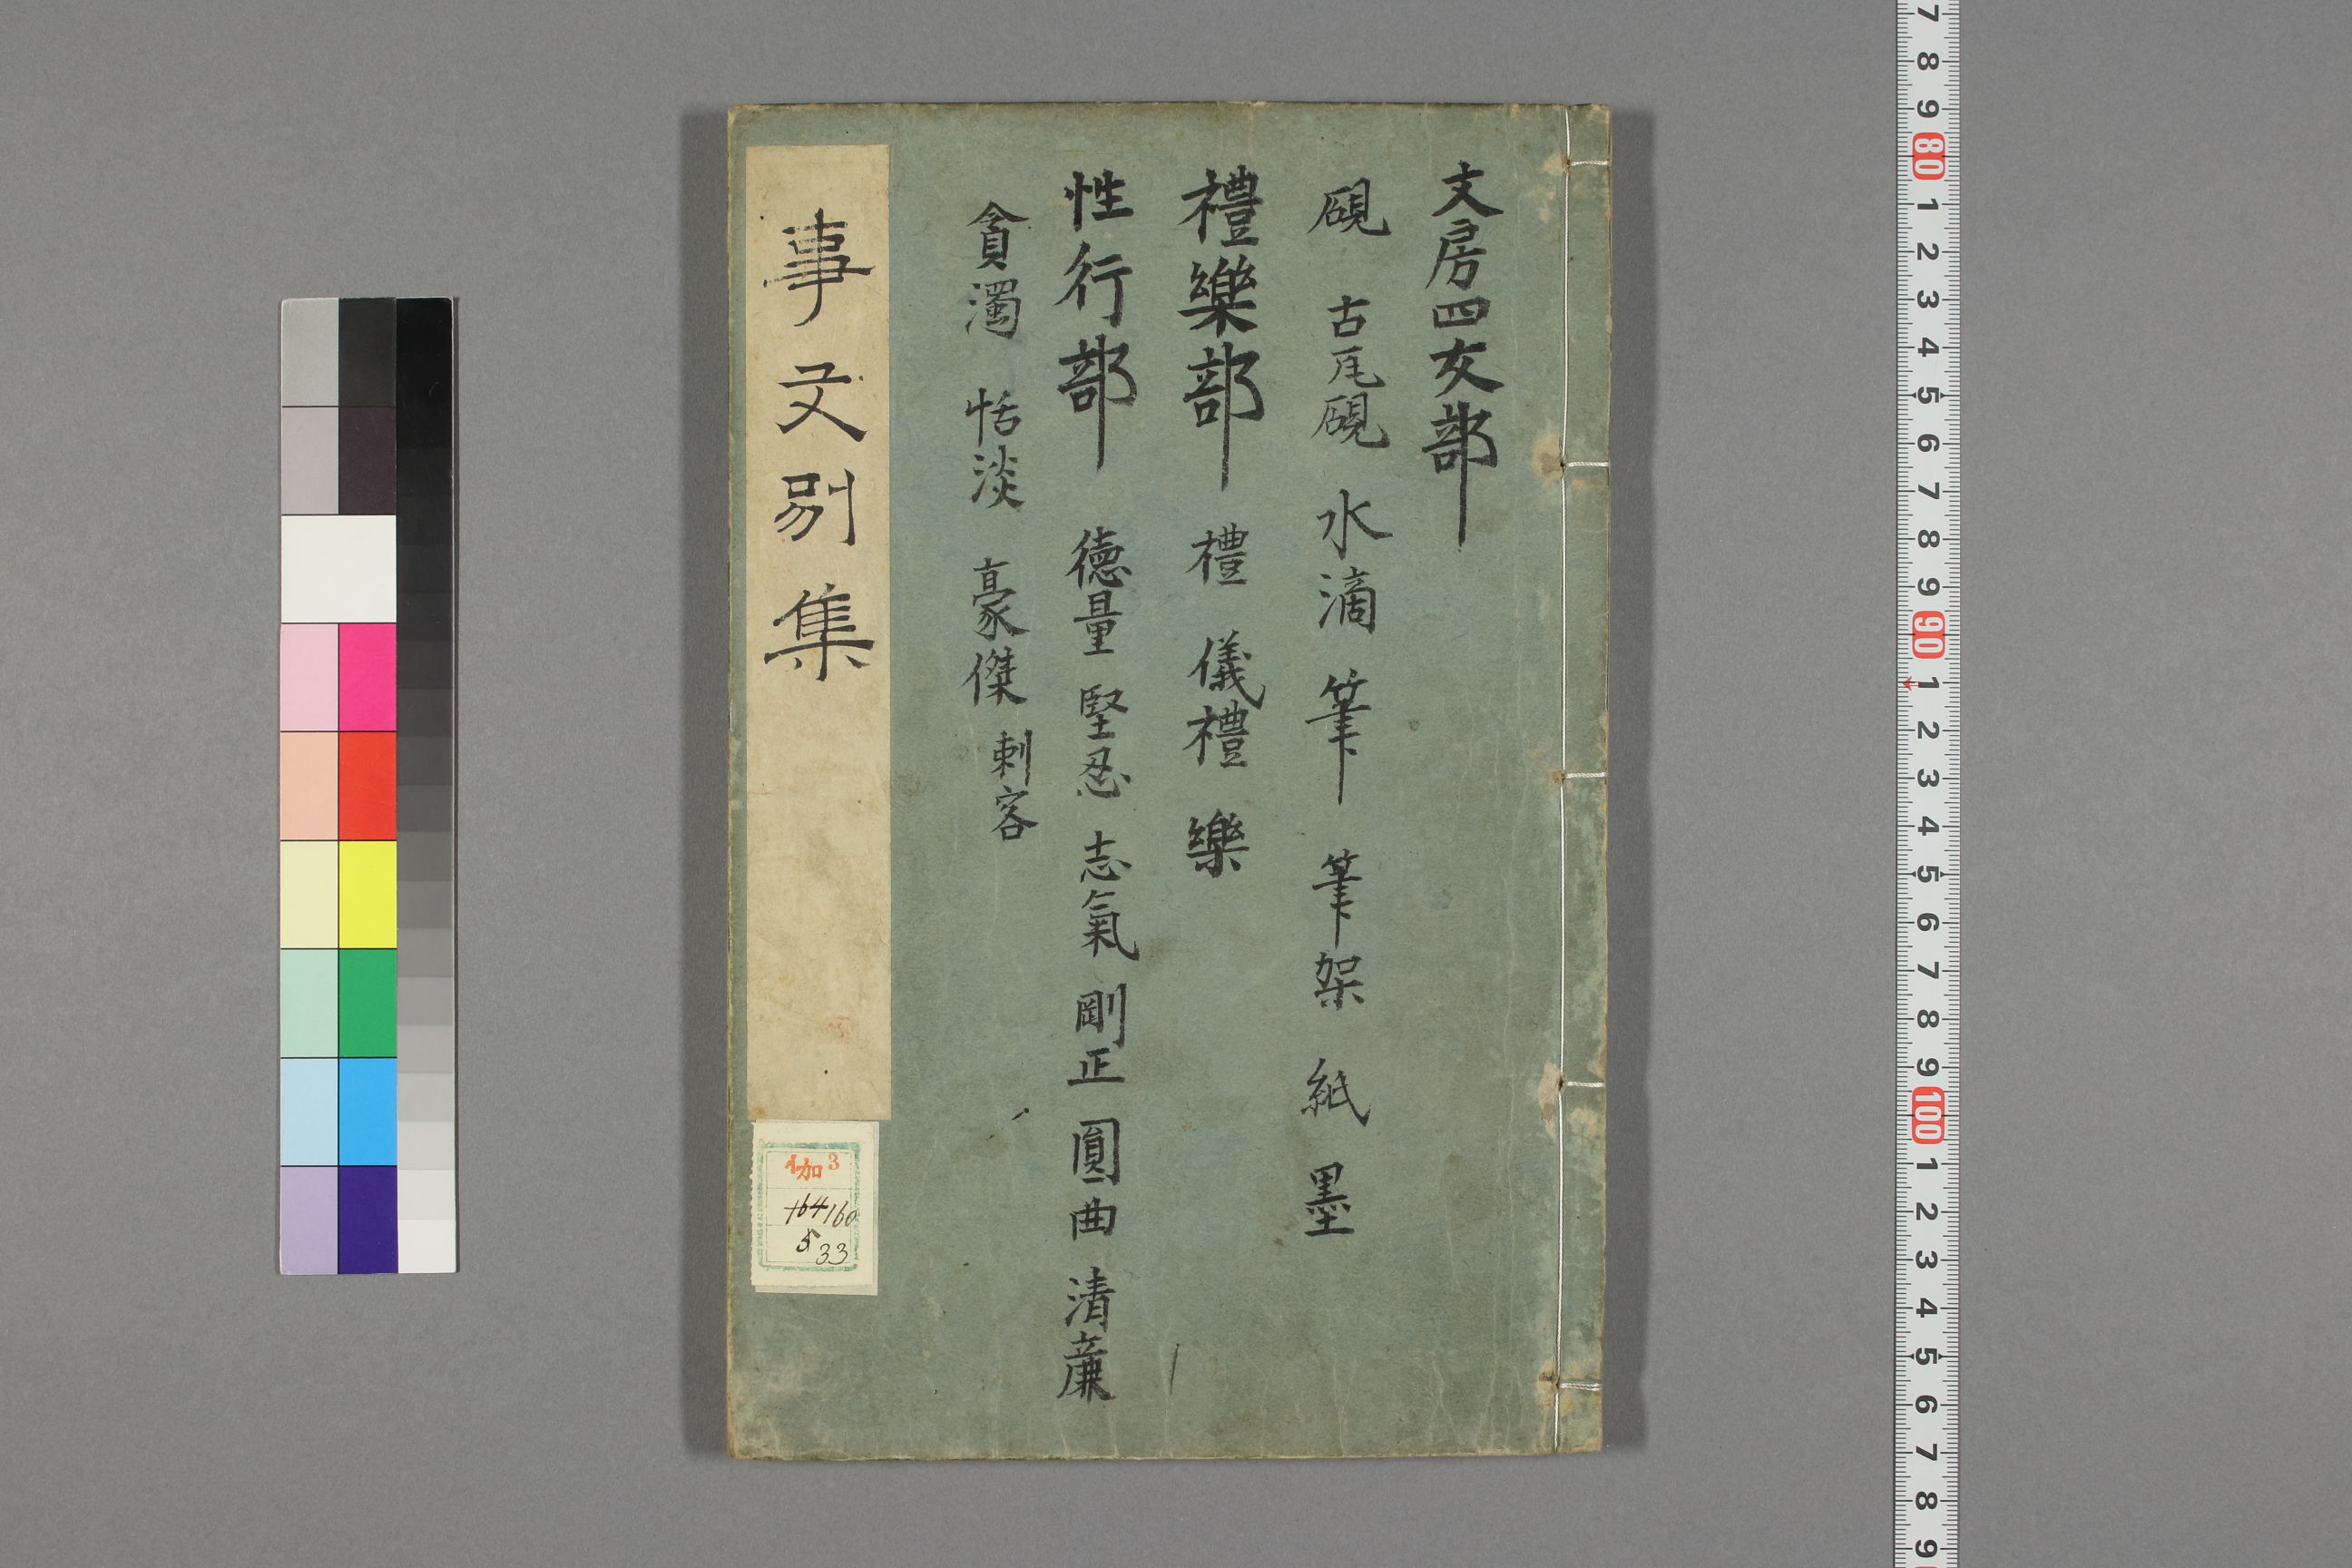 文房四友部
硯 古瓦硯 水滴 筆 筆架 紙 墨
禮樂部 禮 儀禮 樂
性行部 德量 堅忍 志氣 剛正 圓曲 清廉
貪濁 恬淡 豪傑 刺客
事文別集
加3
164 160
5 33
7 8 9 80 1 2 3 4 5 6 7 8 9 90 1 2 3 4 5 6 7 8 9 100 1 2 3 4 5 6 7 8 9